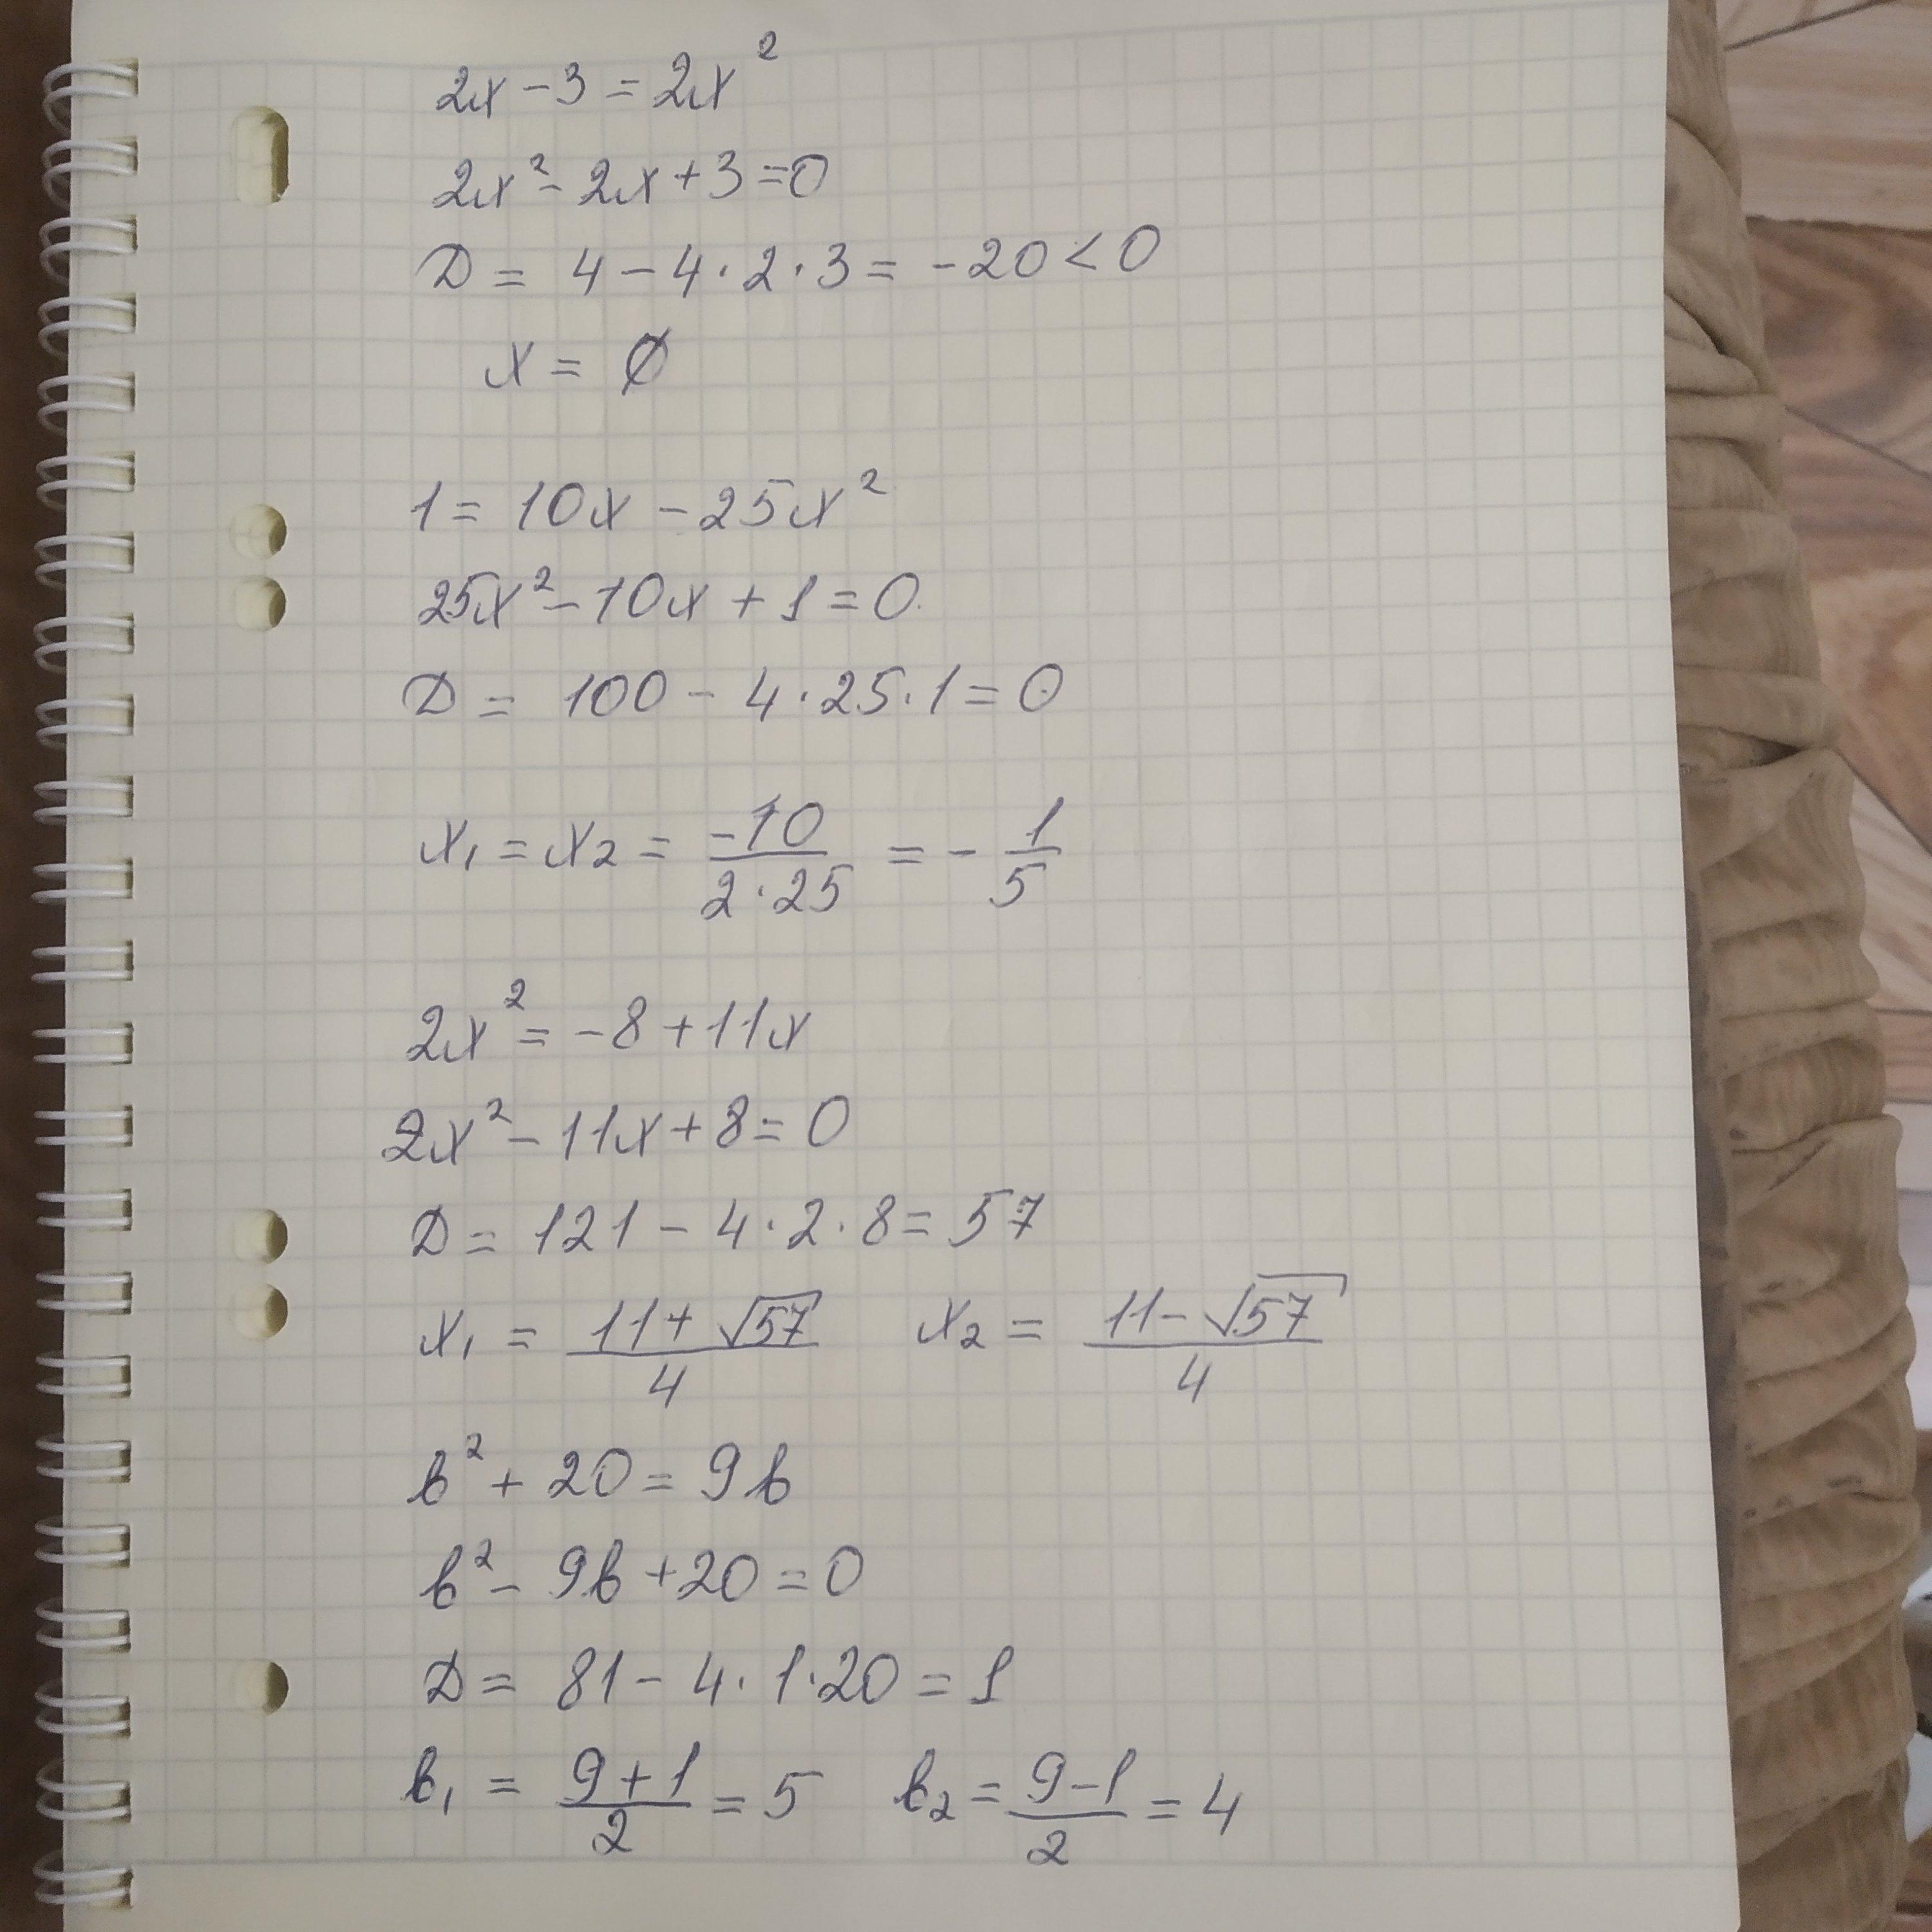 2x - 3 = 2x²
2x² - 2x + 3 = 0
D = 4 - 4 · 2 · 3 = -20 < 0
x = ∅
1 = 10x - 25x²
25x² - 10x + 1 = 0
D = 100 - 4 · 25 · 1 = 0
x₁ = x₂ = -10/(2 · 25) = - 1/5
2x² = -8 + 11x
2x² - 11x + 8 = 0
D = 121 - 4 · 2 · 8 = 57
x₁ = (11 + √57)/4 x₂ = (11 - √57)/4
b² + 20 = 9b
b² - 9b + 20 = 0
D = 81 - 4 · 1 · 20 = 1
b₁ = (9 + 1)/2 = 5 b₂ = (9 - 1)/2 = 4